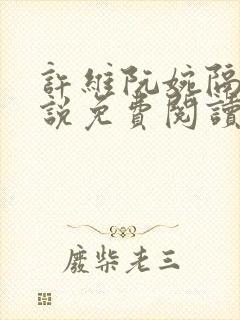 許維阮婉隔
說免費閱讀
廢柴老三